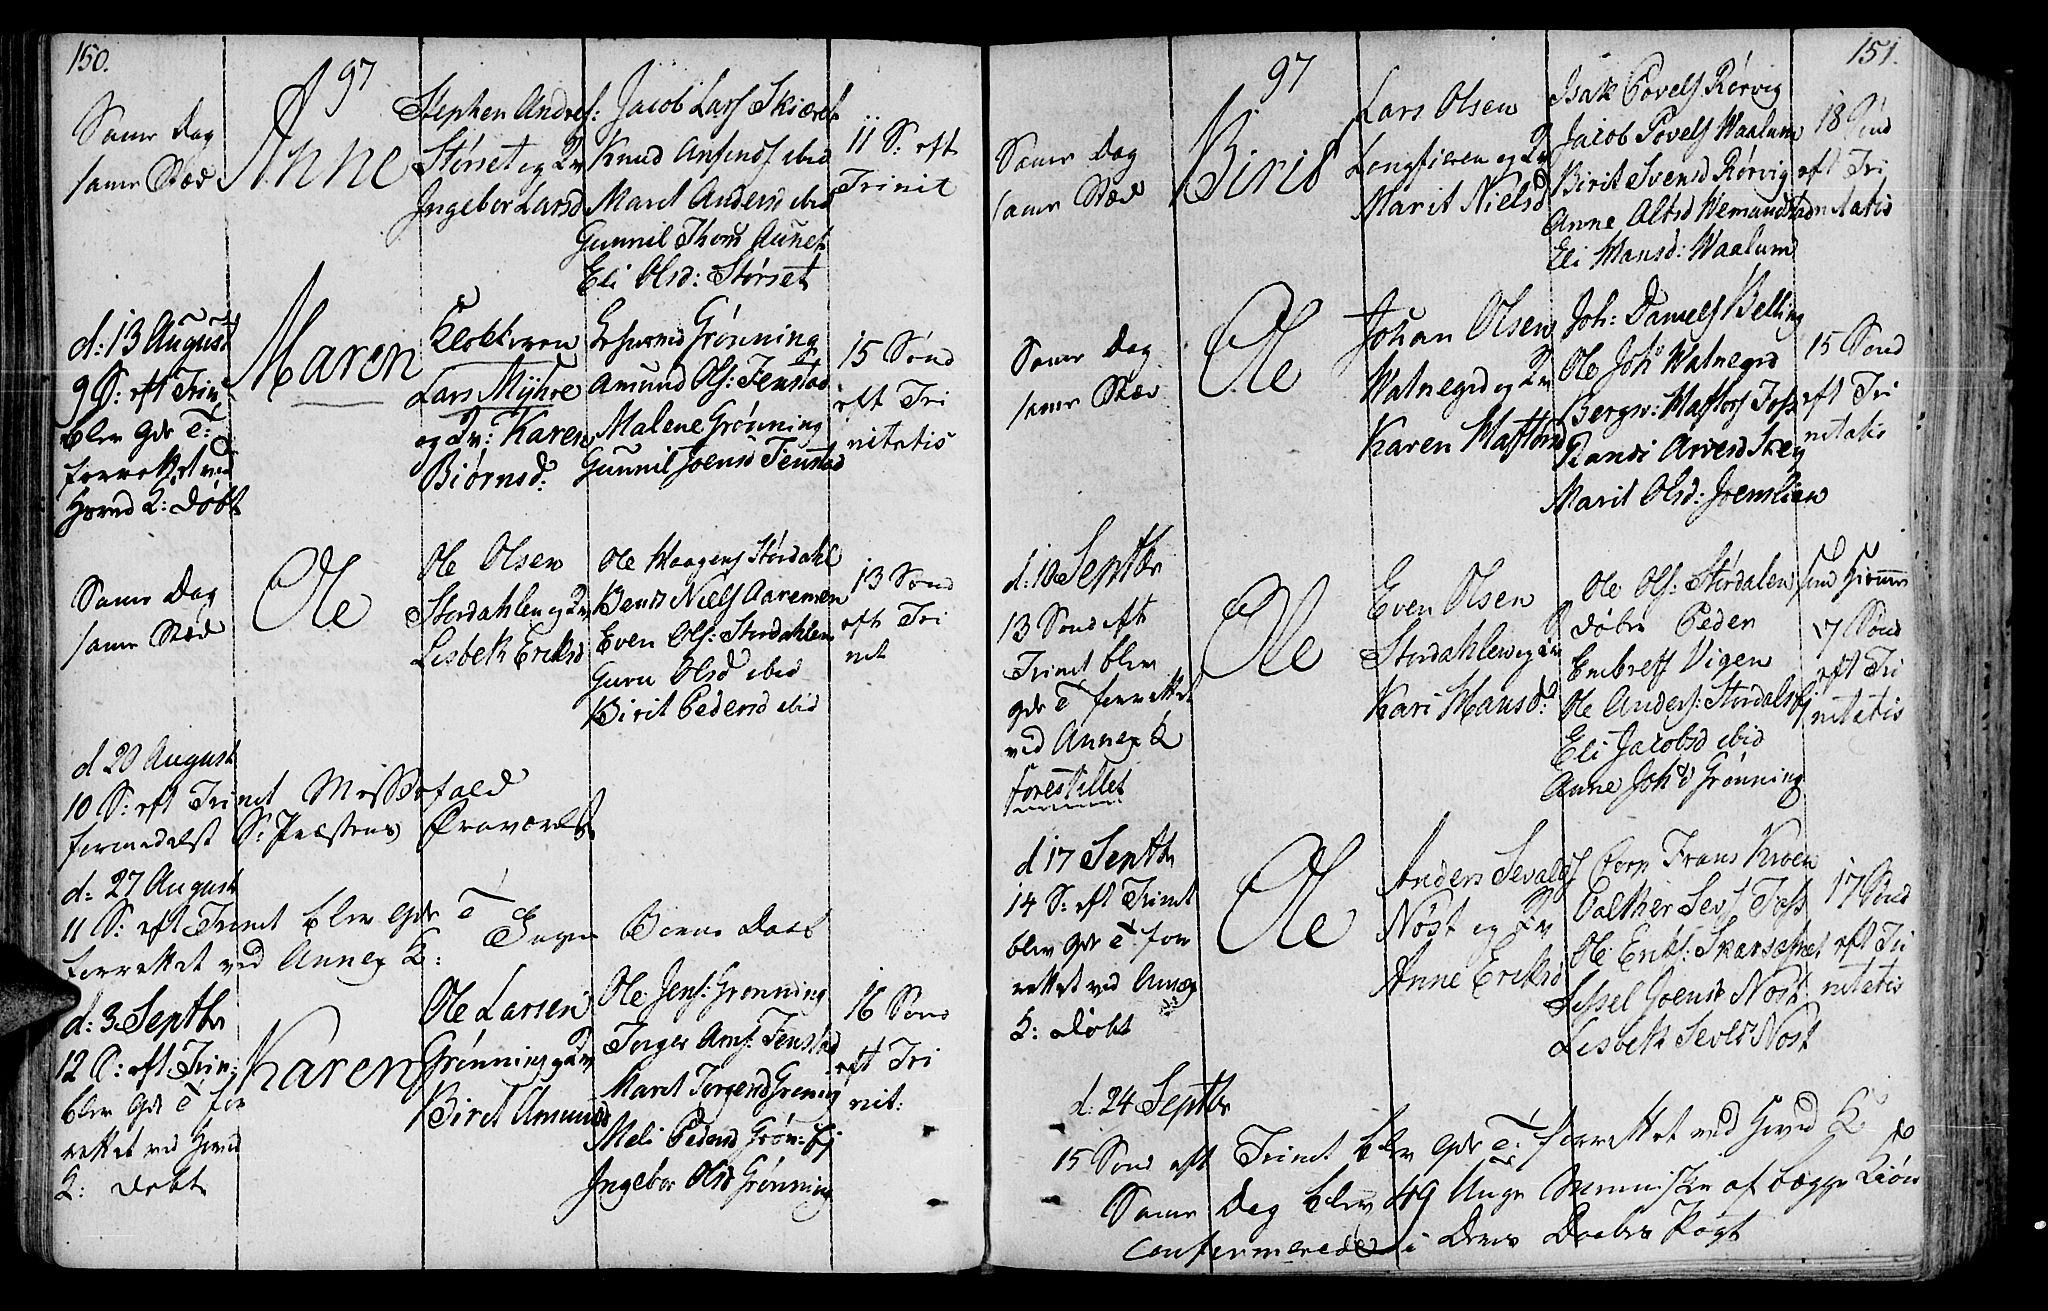 150.
97
Same Dag
same Stæd
Anne
Stephen Anders:
Størset og Qv
Ingebor Larsd
Jacob Lars Skiæret
Knud Anfinds ibid
Maret Andersd ibid
Gunnil Thoms Aunet
Eli Olsd: Størset
11 S: eft
Trinit
d: 13 August
9 S: eft Trin
blev Gds T:
forrettet ved
Hoved K: døbt
Maren
Klokkeren
Lars Myhre
og Qv: Karen
Biørnsd:
Grønning
Amund Ols: Fenstad
Malene Grønning
Gunnil Joensd Fenstad
15 Sond
eft Tri
nitatis
Same Dag
same Stæd
Ole
Ole Olsen
Stordahlen og Qv
Lisbeth Eriksd
Ole Maagens Stordahl
Bend Niels Aaremen
Even Ols: Stordahlen
Guru Olsd ibid
Birit Pedersd ibid
13 Sond
eft Tri
nit
d 20 August
10 S: eft Trinit Messefald
formedelst S: Præstens Fraværelse
d: 27 August
11 S: eft Trinit blev Gds T
forrettet ved Annex K:
Ingen Børn Daab
d: 3 Septbr
12 S: eft Trin:
blev Gds T for
rettet ved Hoved
K: døbt
Karen
Ole Larsen
Grønning og Qv
Birit Amunds
Ole Jens: Grønning
Torger Am: Fenstad
Maret Torgersd Grøning
Meli Pedersd Grøn: Ej
Ingebor Olsd Grønning
16 Sond
eft Tri
nit:
151.
97
Same Dag
same Stæd
Birit
Lars Olsen
Longfieren og Qv
Marit Nielsd
Isak Povels Rørvig
Jacob Povels Waalum
Birit Svensd Rørvig
Anne
Eli Hansd: Waalum
18 Sond
eft Tri
nitatis
Same Dag
same Stæd
Ole
Johan Olsen
Watnegrd og Qv
Karen
Joh: Daniels Belling
Ole Joh: Watnegrd
Bergw: Foss
Randi Arvesd Skey
Marit Olsd: Joenslien
15 Sond
eft Tri
nitatis
d: 10 Septbr
13 Sond eft
Trinit blev
Gds T forrettet
ved Annex K
forestillet
Ole
Even Olsen
Stordahlen og Qv
Kari Hansd:
Ole Ols: Stordalen
døbte Peder
Embrets Vigen
Ole Anders: Stordals Ej
Eli Jacobsd ibid
Anne Johd Grønning
17 Sond
eft Tri
nitatis
d 17 Septbr
14 S: eft Trinit
blev Gds T: for
rettet ved Annex
K: døbt
Ole
Anders Sevalds
Nøst og Qv
Anne Eriksd
Corp Frans Kroen
Palther Sev: Foss
Ole Eriks: Skarsophei
Sissel Joensd Nøst
Lisbeth Sevelsd Nøst
17 Sond
eft Tri
nitatis
d: 24 Septbr
15 Sond eft Trinit blev Gds T: forrettet ved Hoved K
Same Dag blev 49 Unge Mennisker af begge Kiøn
Confirmerede i Deres Daabes Pagt